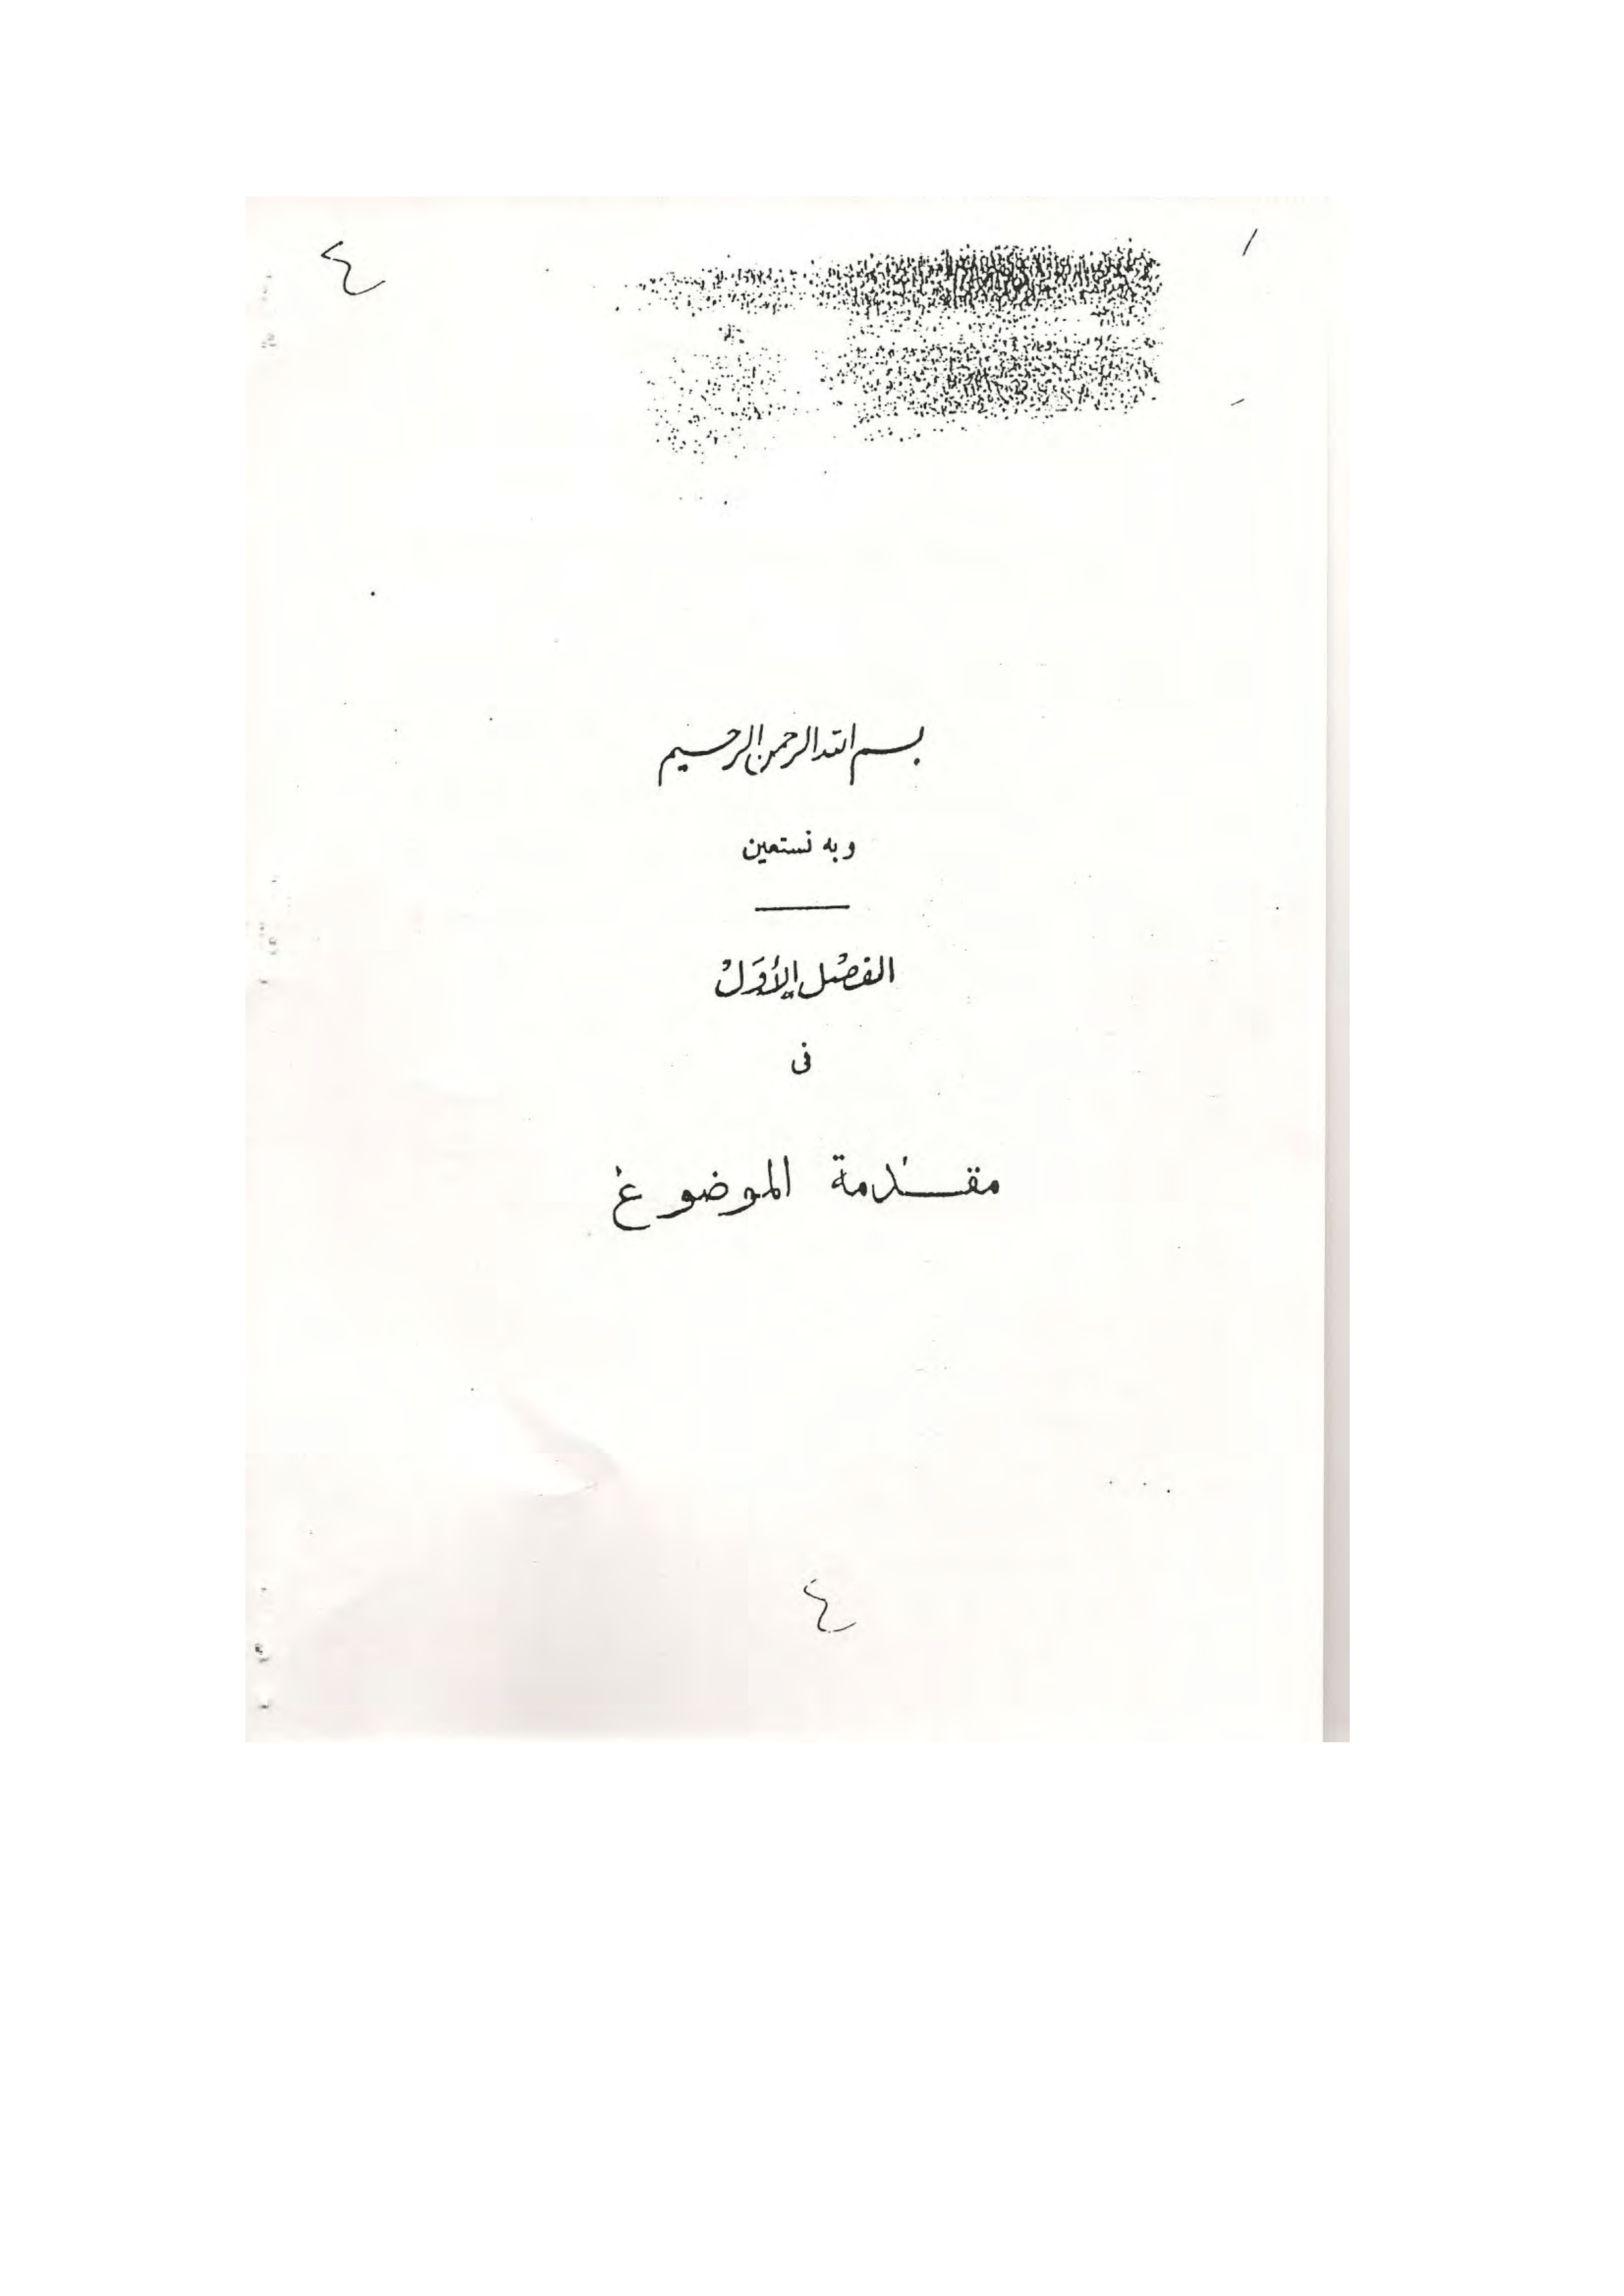 ٤
بسم الله الرحمن الرحيم
وبه نستعين
الفصل الأول
فى
مقدمة الموضوع
٤